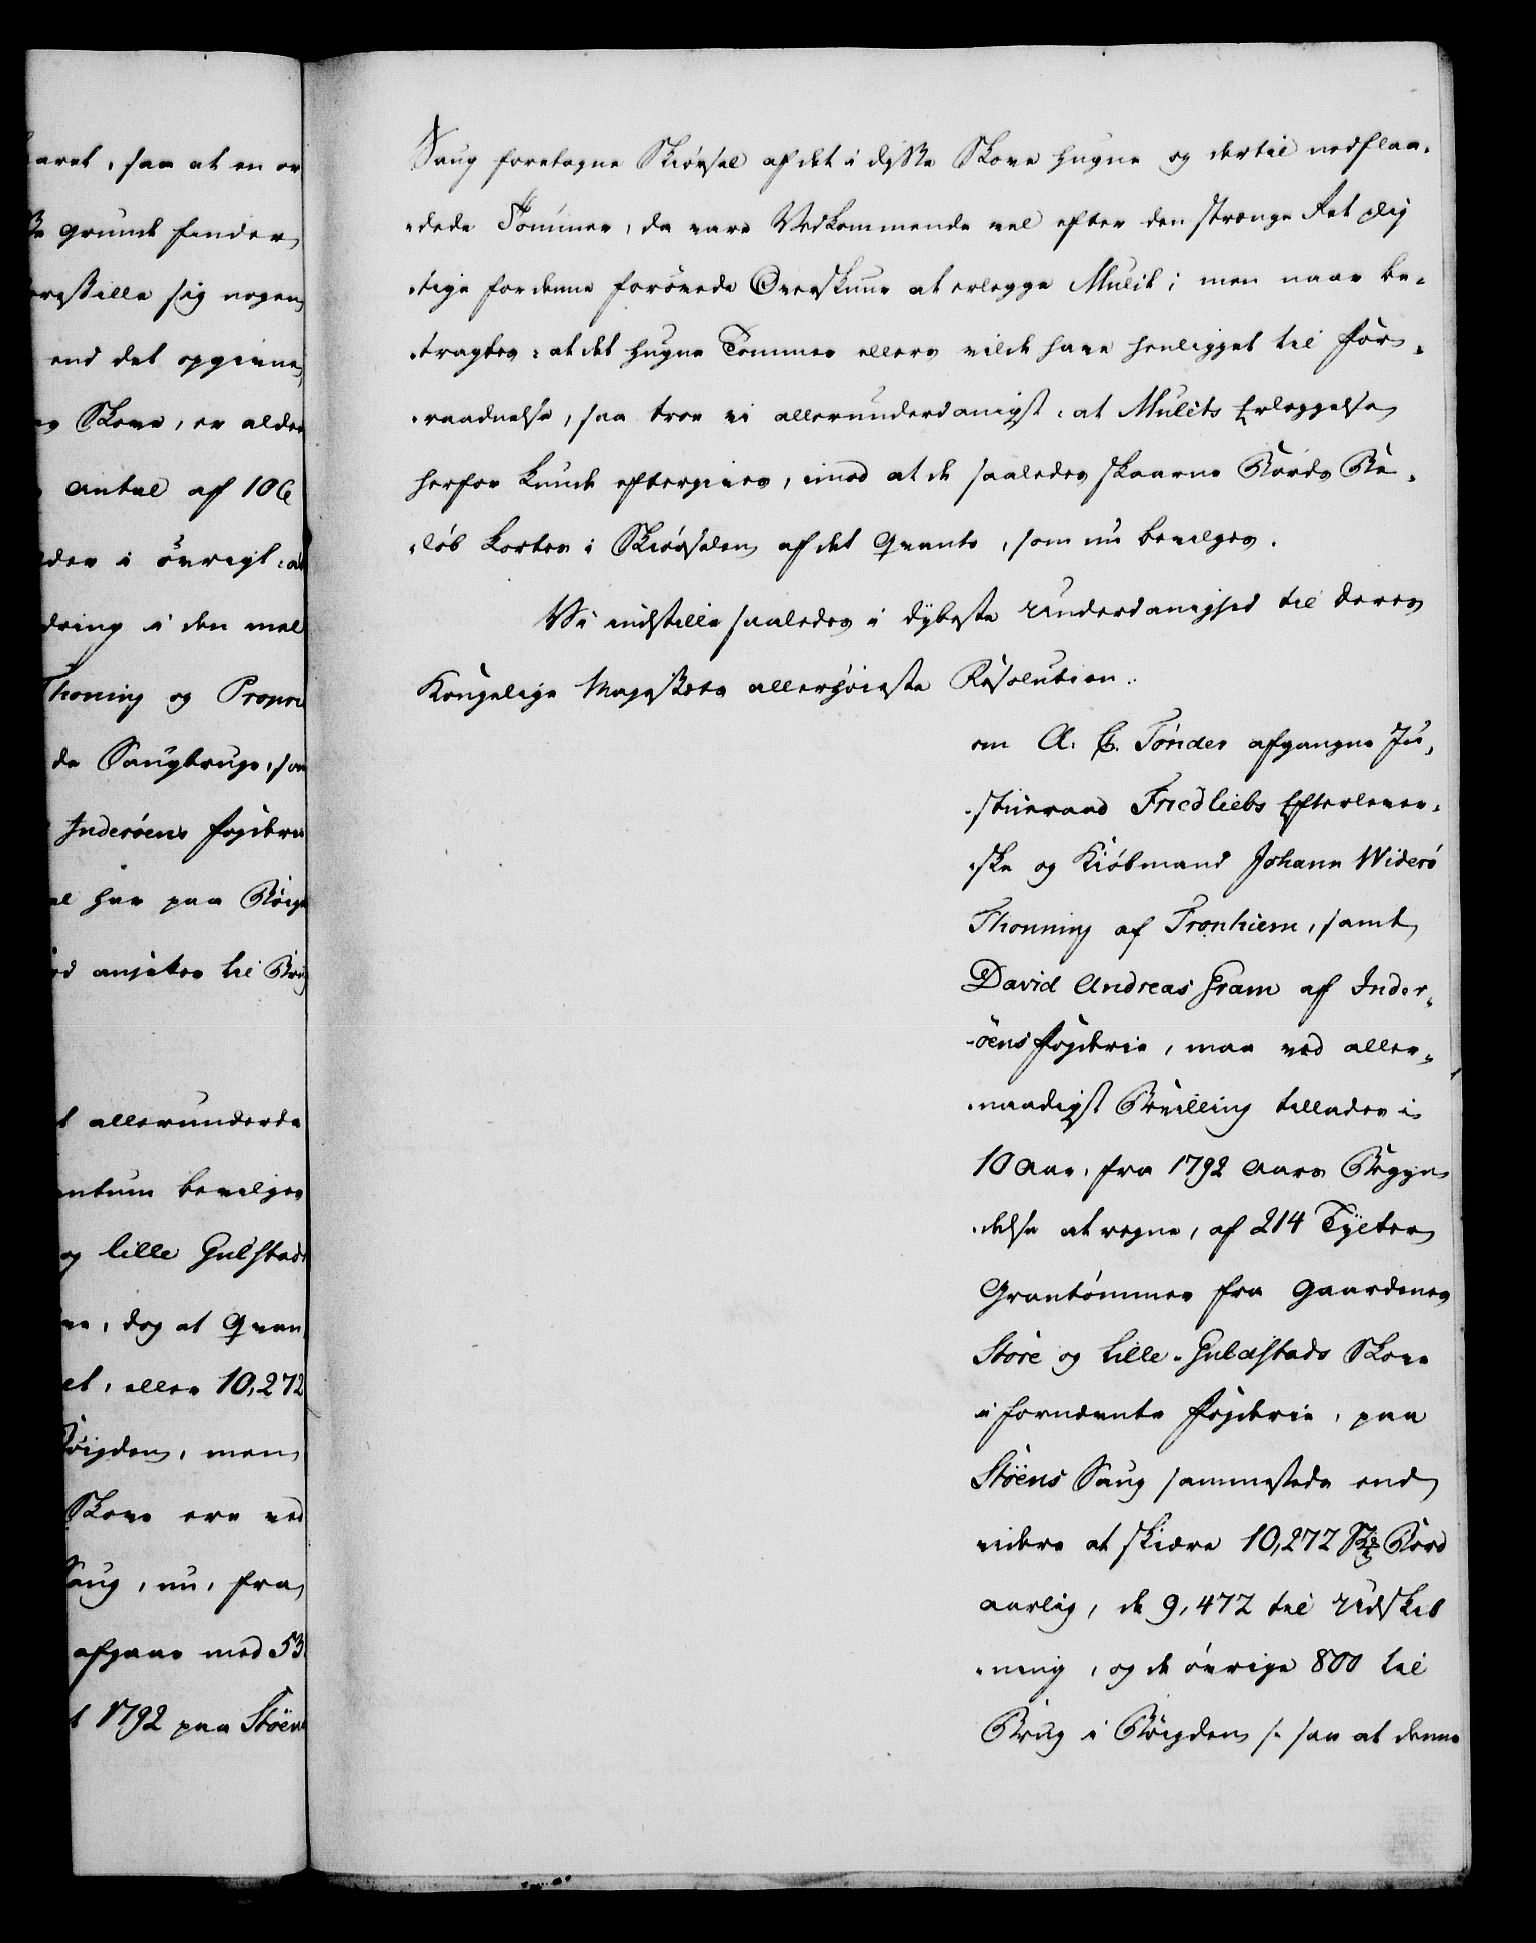 aret, saa at en or
grund finder
orestille sig nogen
end det opgivne
Skove, er alde
antal af 106
der i øvrigt: at
dring i den mel
Thoning og Propri
de Saugbruge, som
Inderöens Fogderi
el har paa Böigd
ansöker til Brug
t allerunderda
antum bevilges
og lille Gulstad
ne, dog at Qvan
et, eller 10,272
Böigden, men
Skove ere ved
Saug, nu, fra
afgaae med 53
t 1792 paa Stöens
Saug foretagne Skiørsel af det i disse Skove hugne og dertil nedflaa-
-dede Tömmer, da vare Vedkommende vel efter den strænge Ret plig
-tige for denne forövede Overskuur at erlegge Mulct; men naar be-
-tragtes: at det hugne Tømmer ellers vilde have henligget til For-
-raadnelse, saa troe vi allerunderdanigst: at Mulcts Erleggelse
herfor kunde eftergives, imod at de saaledes skaarne Bords Be-
-löb kortes i Skiørselen af det Qvanto, som nu bevilges.
Vi indstille saaledes i dybeste Underdanighed til Deres
Kongelige Majestets allerhöieste Resolution:
om A. C. Tönder afgangne Ju-
-stiieraad Friedliebs Efterlever-
-ske og Kiöbmand Johann Widerö
Thonning af Tronhiem, samt
David Andreas Gram af Inder-
-öens Fogderie, maa ved aller-
-naadigst Bevilling tillades i
10 Aar, fra 1792 Aars Begyn
-delse at regne, af 214 Tylter
Grantömmer fra Gaardenes
Store og Lille-Guldstads Skove
i fornævnte Fogderie, paa
Stöens Saug sammesteds end
videre at skiære 10,272 Stk Bord
aarlig, de 9,472 til Udskib
-ning, og de övrige 800 til
Brug i Böigden /: saa at denne